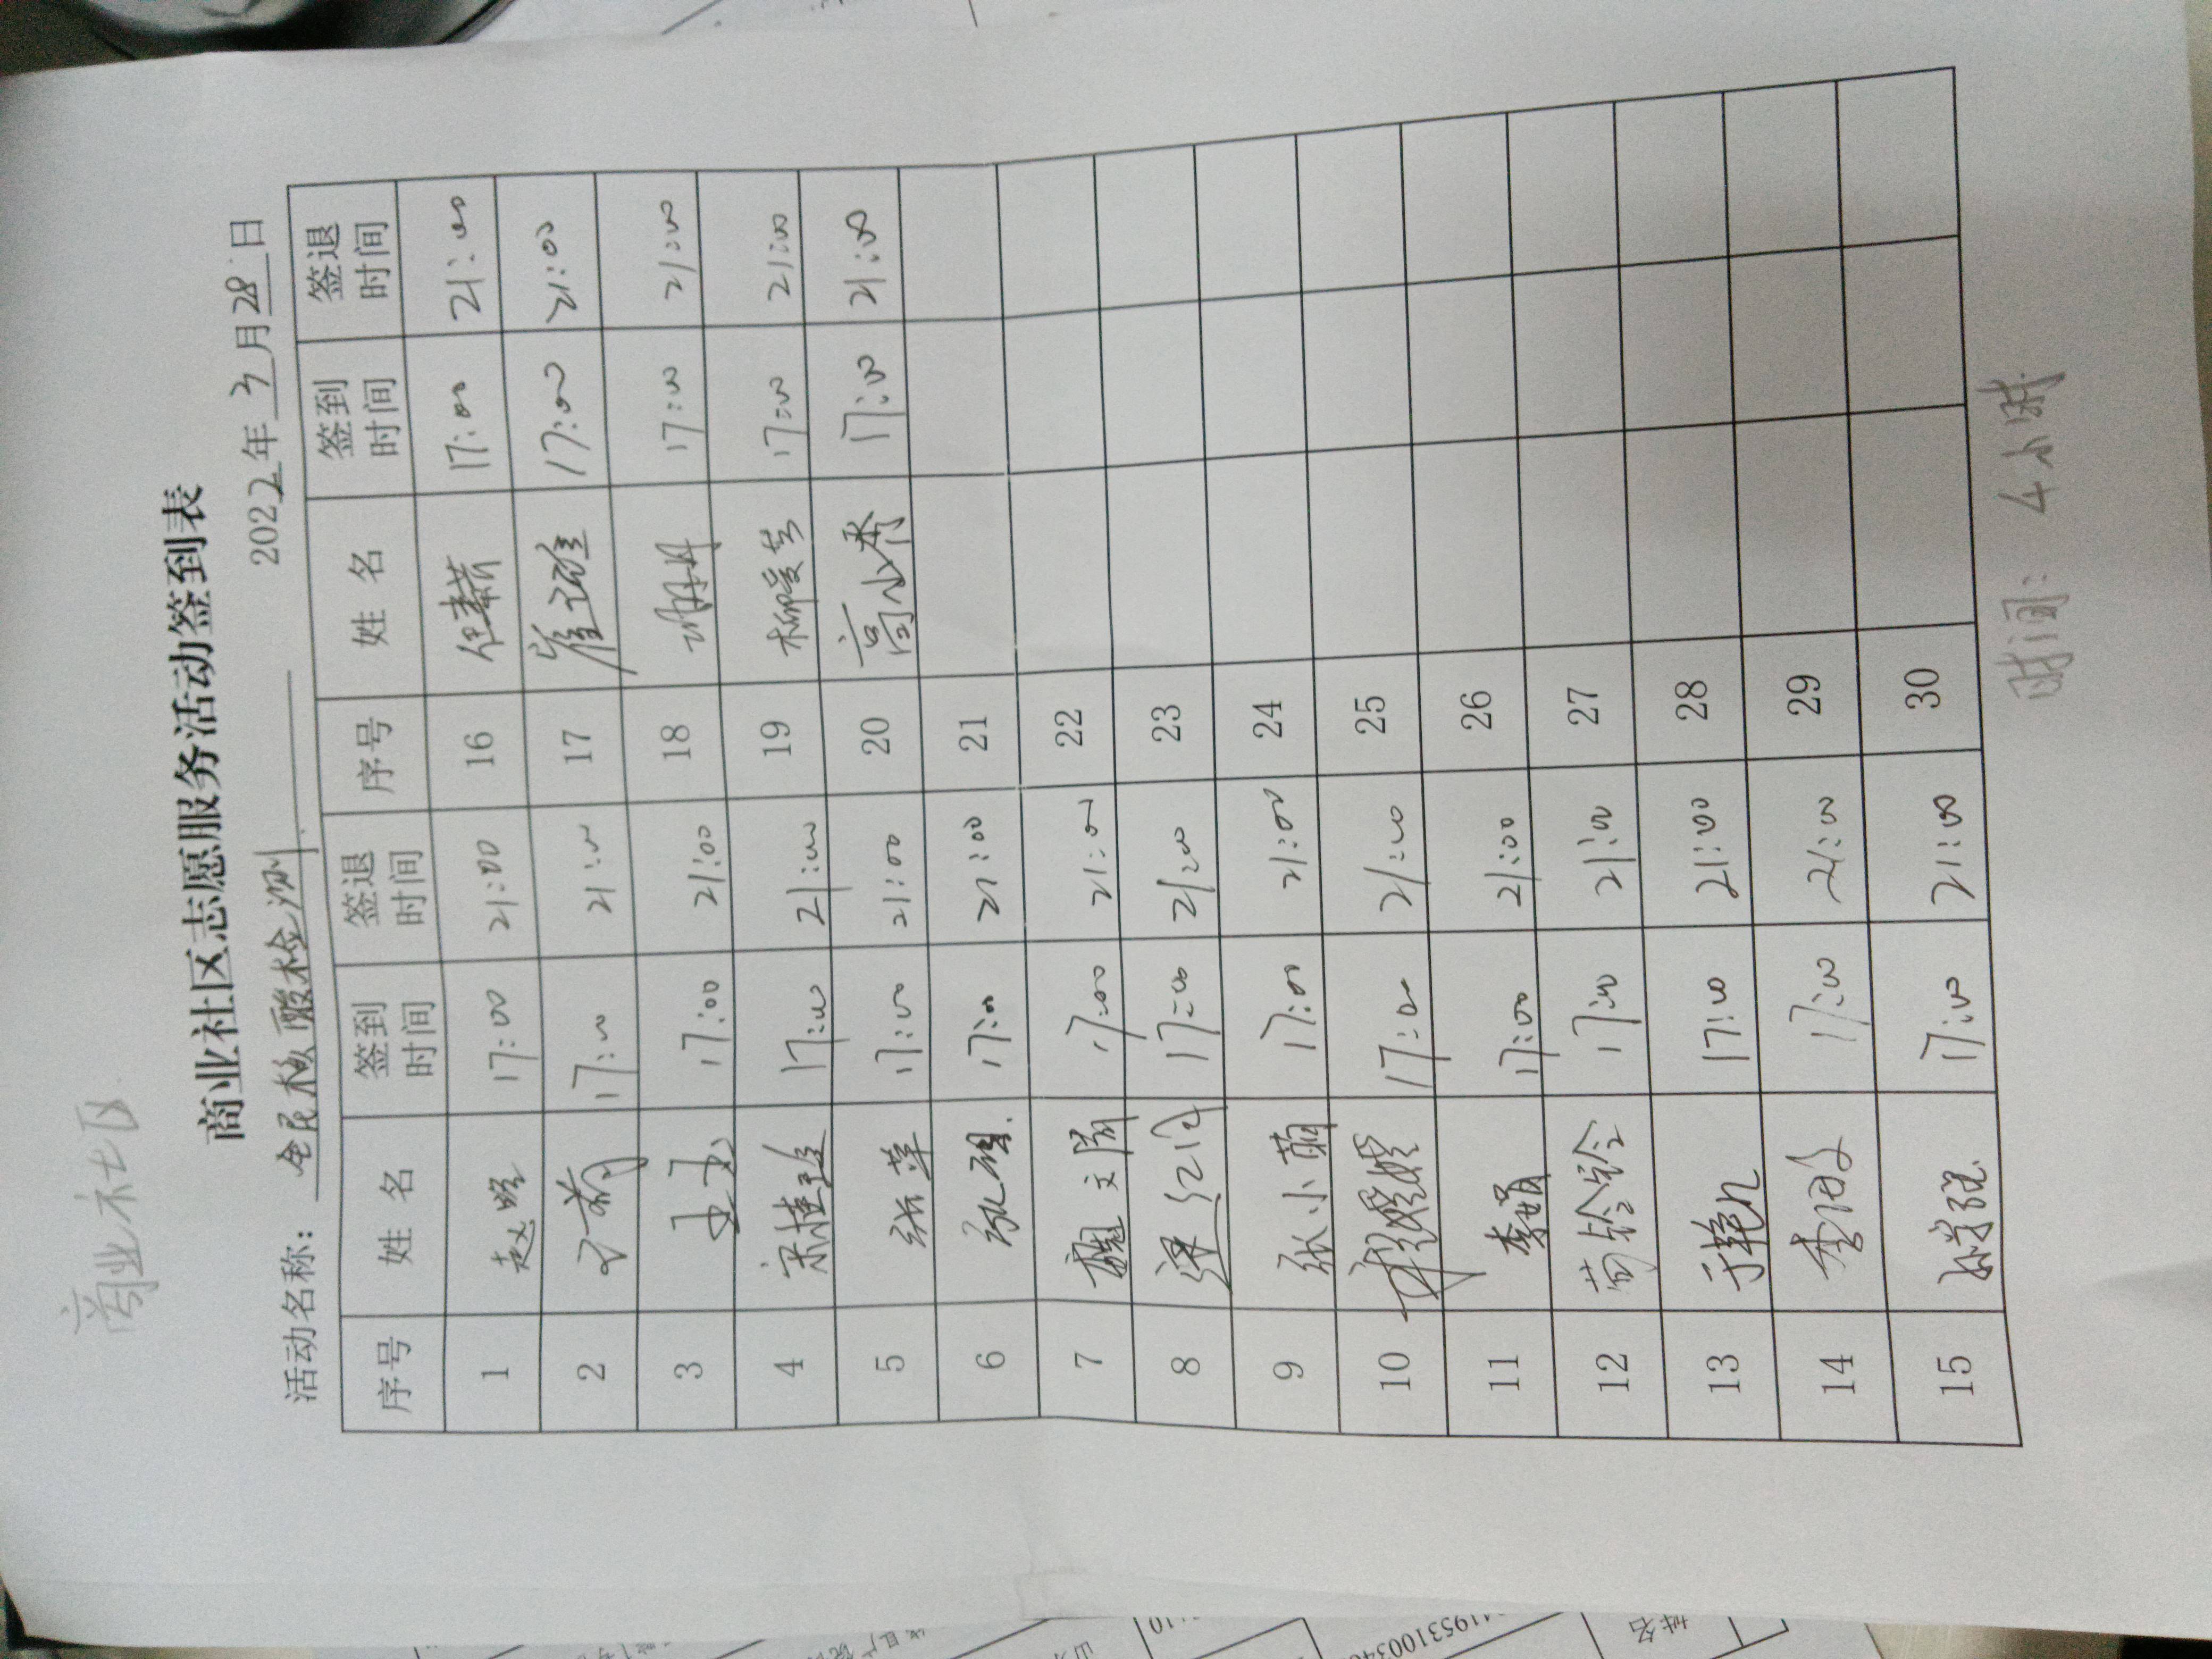 商业社区
商业社区志愿服务活动签到表
活动名称: 全民核酸检测 2022年3月28日
序号 姓 名 签到时间 签退时间 序号 姓 名 签到时间 签退时间
1 赵 17:00 21:00 16 任 17:00 21:00
2 21:00 17:00 17 崔 17:00 21:00
3 王玉 17:00 21:00 18 17:00 21:00
4 宋桂 17:00 21:00 19 柳爱芳 17:00 21:00
5 张苹 17:00 21:00 20 高小秀 17:00 21:00
6 17:00 21:00 21
7 魏文 17:00 21:00 22
8 红 17:00 21:00 23
9 张小萌 17:00 21:00 24
10 媛媛 17:00 21:00 25
11 李娟 17:00 21:00 26
12 苟铃铃 17:00 21:00 27
13 于艳 17:00 21:00 28
14 李 17:00 21:00 29
15 17:00 21:00 30
时间: 4小时
姓名